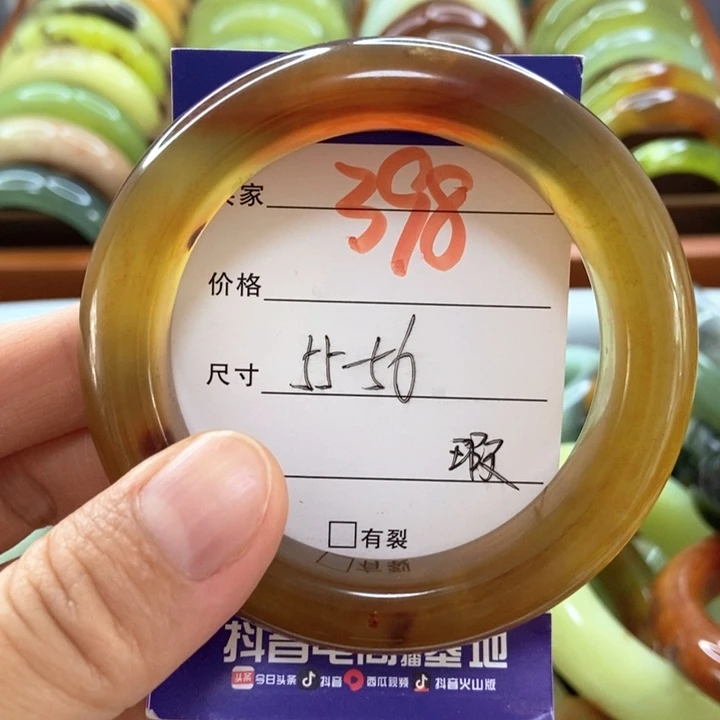 家 398
价格
尺寸 55-56
瑕
有裂
抖音电商直播基地
今日头条 抖音 西瓜视频 抖音火山版